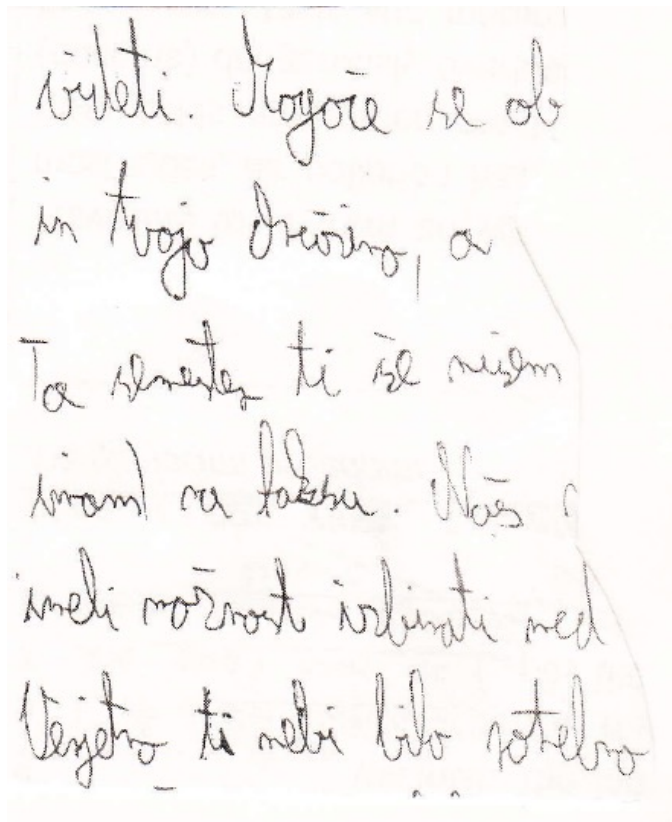 videti. Mogoče se ob
in tvojo družino, a
Ta semester ti še nisem
imam) na faksu. Naš
imeli možnost izbirati med
Verjetno ti nebi bilo potrebno